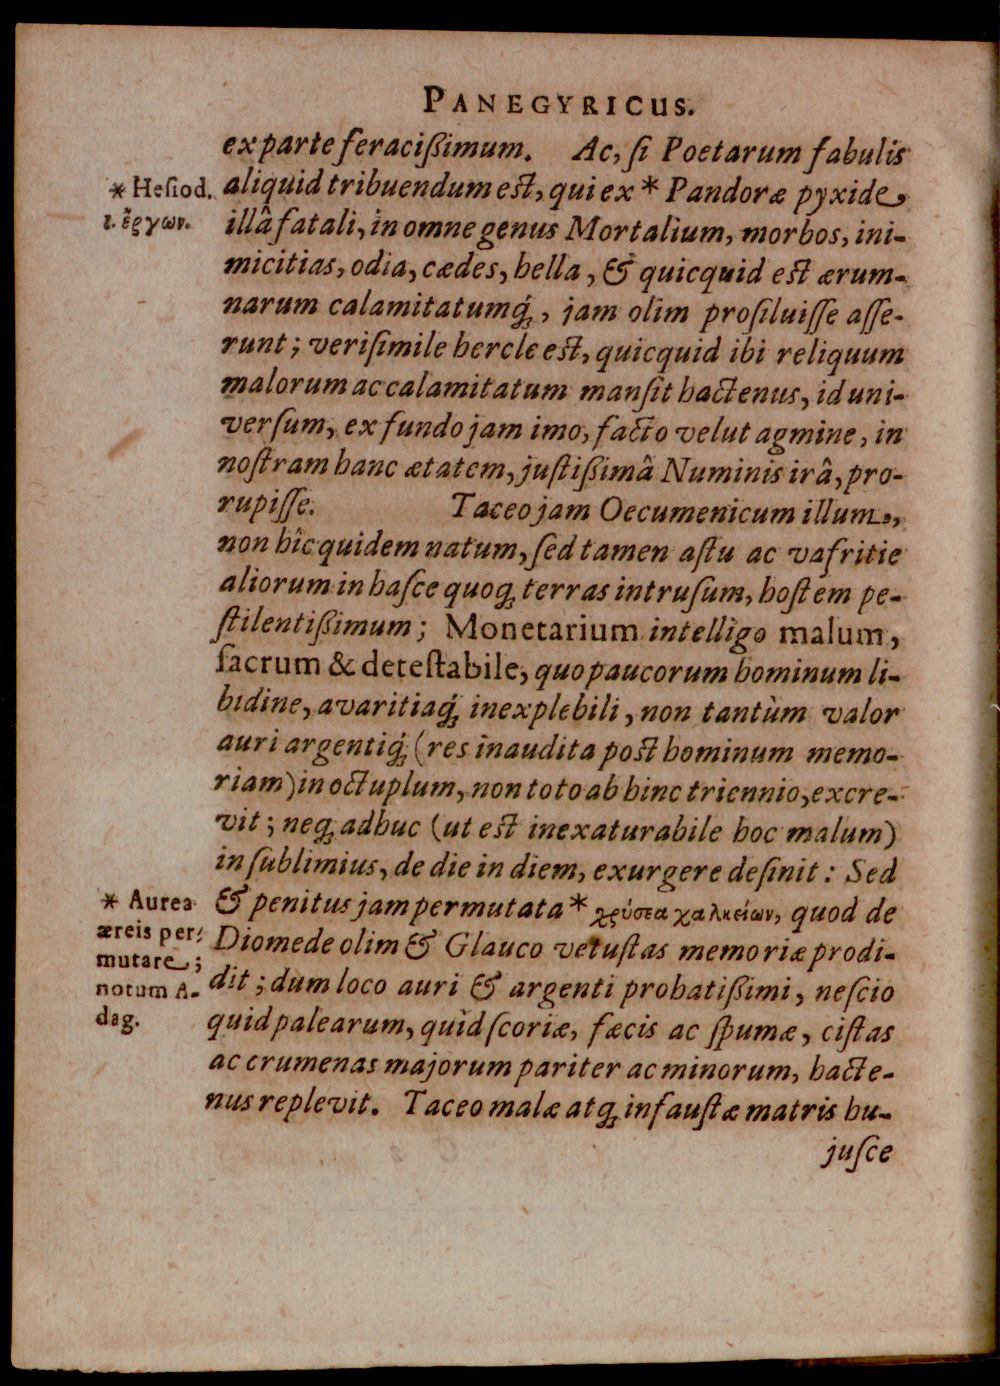 PANEGYRICUS.
ex parte feracißimum. Ac, ſi Poetarum fabulis
aliquid tribuendum est, qui ex * Pandoræ pyxide
illâ fatali, in omne genus Mortalium, morbos, ini-
micitias, odia, cædes, bella, & quicquid est ærum-
narum calamitatumq́;, jam olim proſiluiſſe aſſe-
runt; veriſimile hercle est, quicquid ibi reliquum
malorum ac calamitatum manſit hactenus, id uni-
verſum, ex fundo jam imo, facto velut agmine, in
noſtram hanc ætatem, juſtißimâ Numinis irâ, pro-
rupiſſe. Taceo jam Oecumenicum illum,
non hîc quidem natum, ſed tamen aſtu ac vafritie
aliorum in haſce quoq; terras intruſum, hoſtem pe-
ſtilentißimum; Monetarium intelligo malum,
ſacrum & deteſtabile, quo paucorum hominum li-
bidine, avaritiaq́; inexplebili, non tantùm valor
auri argentiq́; (res inaudita post hominum memo-
riam) in octuplum, non toto abhinc triennio, excre-
vit; neq; adhuc (ut est inexaturabile hoc malum)
in ſublimius, de die in diem, exurgere deſinit: Sed
& penitus jam permutata * χρύσεα χαλκείων, quod de
Diomede olim & Glauco vetuſtas memoriæ prodi-
dit; dum loco auri & argenti probatißimi, neſcio
quid palearum, quid ſcoriæ, fæcis ac ſpumæ, ciſtas
ac crumenas majorum pariter ac minorum, hacte-
nus replevit. Taceo malæ atq; infauſtæ matris hu-
juſce
* Heſiod.
1. ἔργων.
* Aurea
æreis per-
mutare;
notum A-
dag.